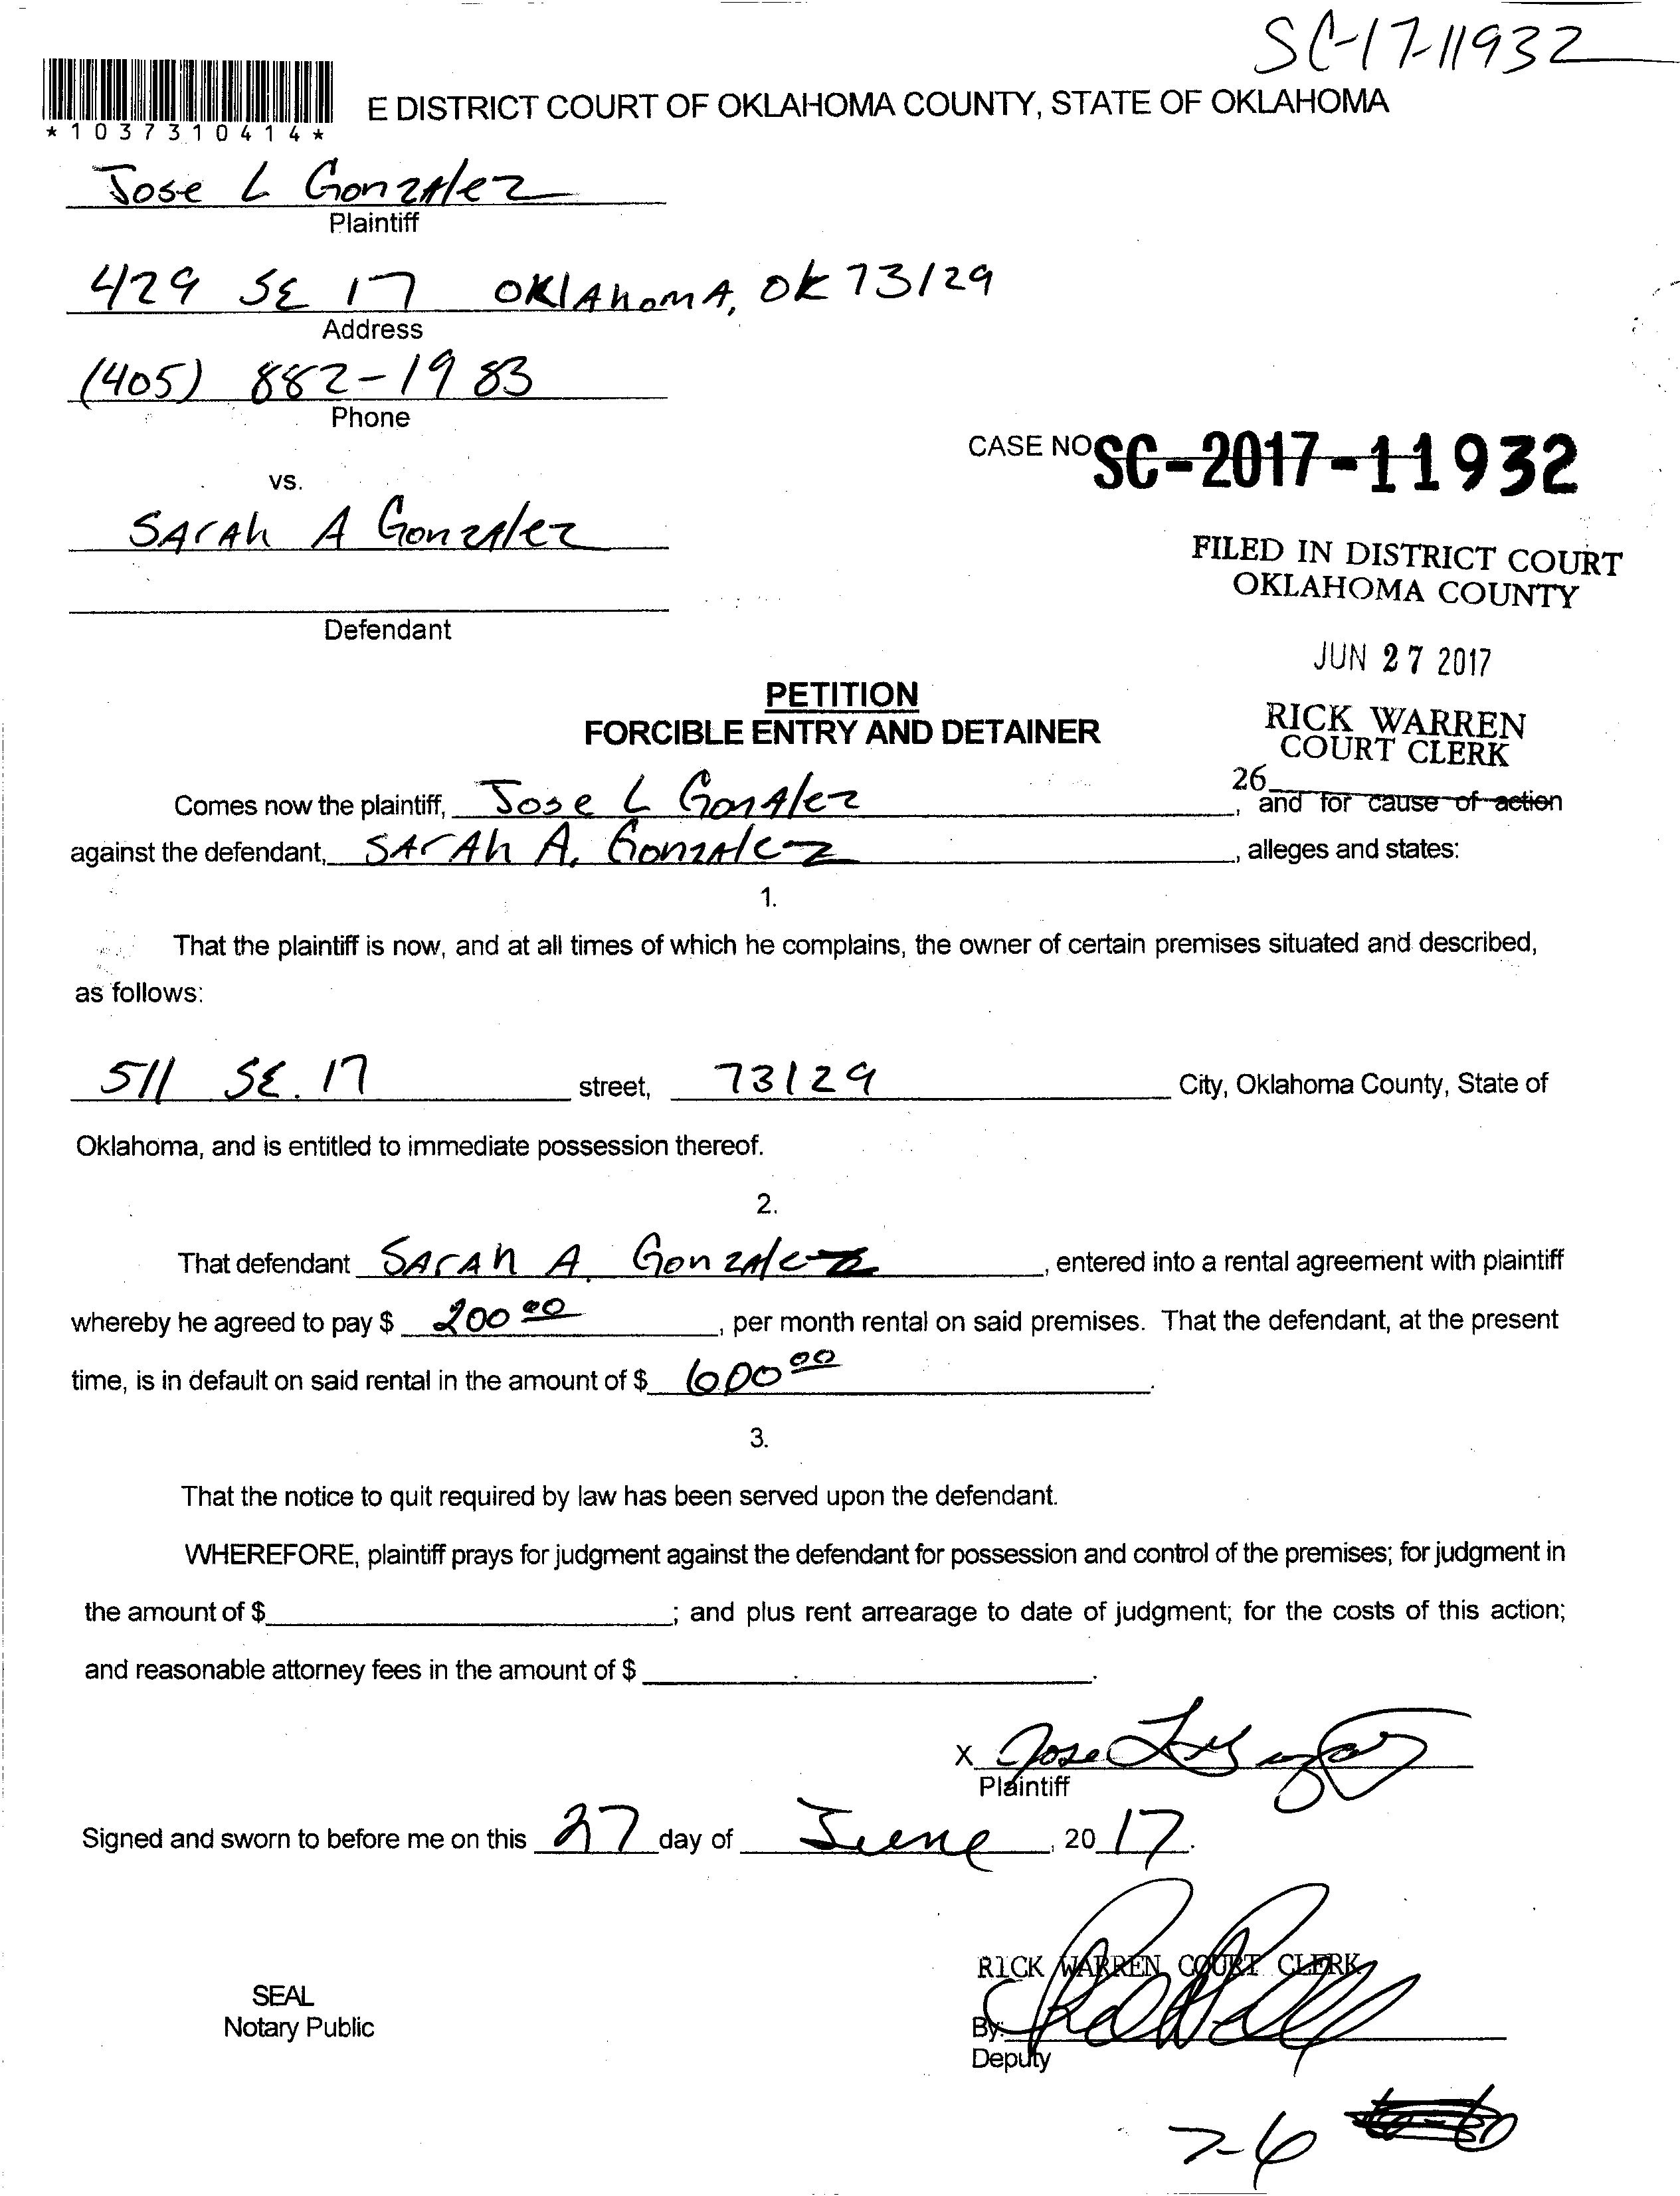 SC-17-11932
*1037310414*
E DISTRICT COURT OF OKLAHOMA COUNTY, STATE OF OKLAHOMA
Jose L Gonzalez
Plaintiff
429 SE 17 OKlAhomA, OK 73129
Address
(405) 882-1983
Phone
CASE NO SC-2017-11932
vs.
SArAh A Gonzalez
FILED IN DISTRICT COURT
OKLAHOMA COUNTY
Defendant
JUN 27 2017
PETITION
FORCIBLE ENTRY AND DETAINER
RICK WARREN
COURT CLERK
26
Comes now the plaintiff, Jose L GonAlez, and for cause of action
against the defendant, SArAh A. GonzAlez, alleges and states:
1.
That the plaintiff is now, and at all times of which he complains, the owner of certain premises situated and described,
as follows:
511 SE. 17 street, 73129 City, Oklahoma County, State of
Oklahoma, and is entitled to immediate possession thereof.
2.
That defendant SArAh A. GonzAlez, entered into a rental agreement with plaintiff
whereby he agreed to pay $ 200 00, per month rental on said premises. That the defendant, at the present
time, is in default on said rental in the amount of $ 600 00.
3.
That the notice to quit required by law has been served upon the defendant.
WHEREFORE, plaintiff prays for judgment against the defendant for possession and control of the premises; for judgment in
the amount of $ ; and plus rent arrearage to date of judgment; for the costs of this action;
and reasonable attorney fees in the amount of $ .
X Jose L
Plaintiff
Signed and sworn to before me on this 27 day of June, 2017.
RICK WARREN COURT CLERK
SEAL
Notary Public
By:
Deputy
7-6